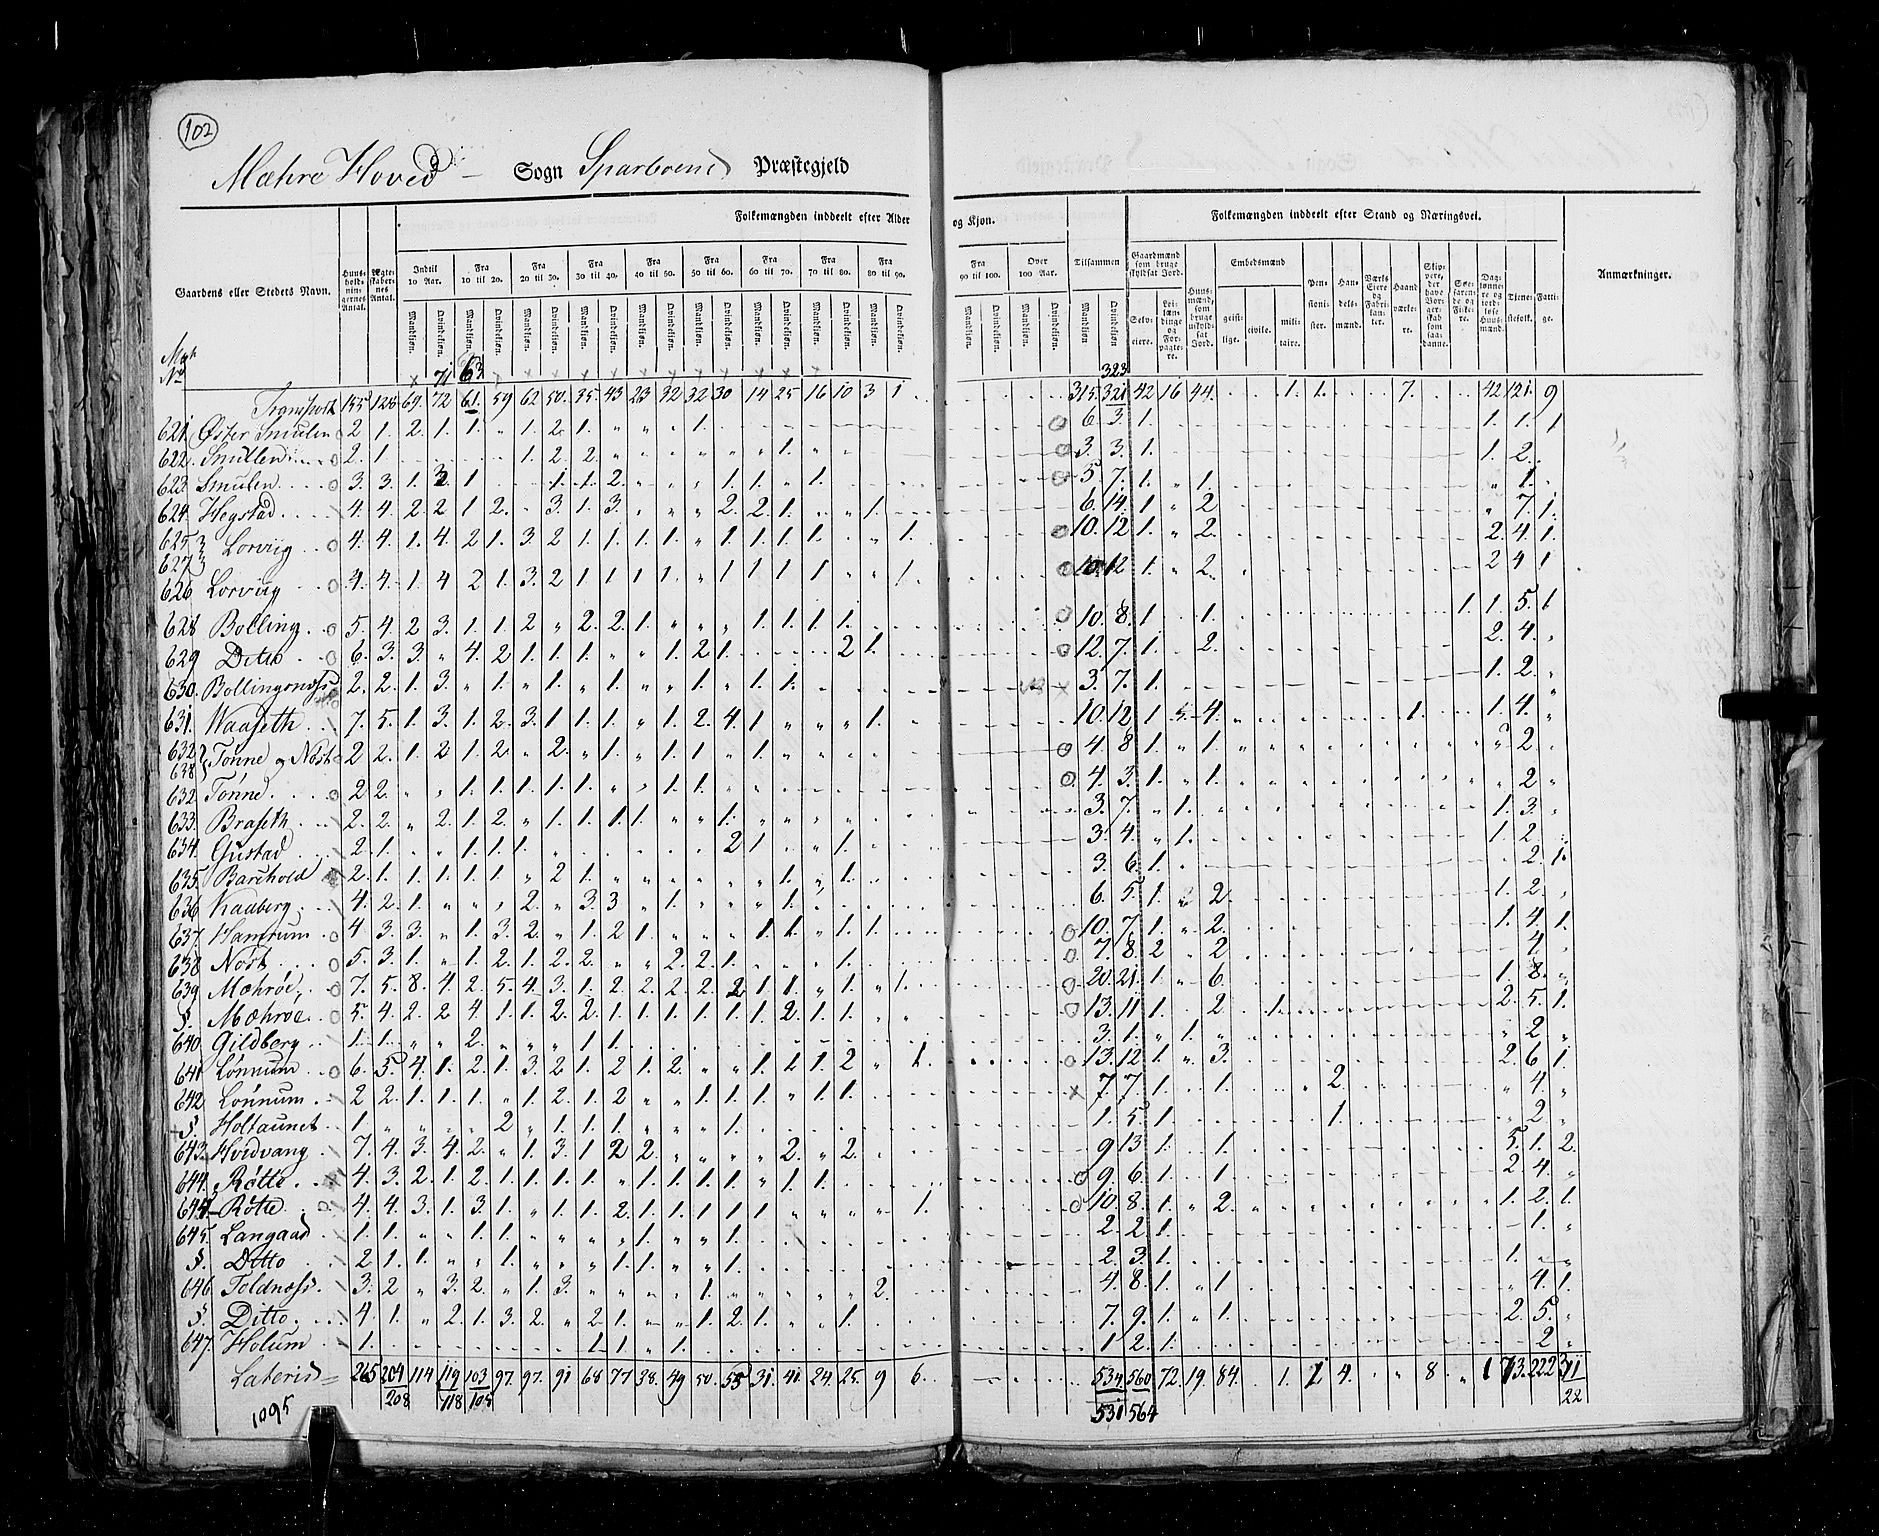 102
Mæhre Hoved Sogn Sparboens Præstegjeld
Gaardens eller Stedets Navn.
Huus-holdnin-gernes Antal.
Ægte-skaber-nes Antal.
Folkemængden inddeelt efter Alder og Kjøn.
Indtil 10 Aar.
Fra 10 til 20.
Fra 20 til 30.
Fra 30 til 40.
Fra 40 til 50.
Fra 50 til 60.
Fra 60 til 70.
Fra 70 til 80.
Fra 80 til 90.
Fra 90 til 100.
Over 100 Aar.
Tilsammen
Mandkjøn. Qvindekjøn.
Folkemængden inddeelt efter Stand og Næringsvei.
Gaardmænd som bruge skyldsat Jord.
Selv-eiere.
Lei-læn-dinge og For-pagte-re.
Huus-mænd, som bruge uskyld-sat Jord.
Embedsmænd
geist-lige.
civile.
mili-taire.
Pen-sioni-ster.
Han-dels-mænd.
Værks Eiere og Fabri-kan-ter.
Haand værke-re.
Skip-pere, der have Bor-ger-skab som saa-danne.
Søe-farende og Fiske-re.
Dag-lønne-re og jord-løse Huus-mænd.
Tjene-stefolk.
Fatti-ge.
Anmærkninger.
71 63 323
Transport 155 128 69. 72 61. 59 62 50. 35. 43 23 32 32 30 14 25 16 10 3 1 315. 321 42 16 44. 1. 1. 7. 42 121. 9
621. Øster Smulen 2 1. 2. 1. 1. 1. 2. 1. 1. 6. 3. 1. 1. 1. 1
622. Smullen 2. 1 1. 2. 2. 1. 3. 3. 1. 1. 2.
623. Smulen 3. 3. 1. 3. 1 1. 1. 2. 1. 1. 1. 5. 7. 1. 1. 1.
624. Hegstad 4. 4. 2. 2 1 2. 3. 1. 3. 2. 2. 1. 1. 6. 14. 1. 2 7. 1.
625 627 Lorviig 4. 4. 1. 4. 2 1. 3. 2 1. 1. 1. 1. 1. 1. 1. 1. 1. 10. 12 1. 2. 2. 4. 1.
626 Lorviig 4. 4. 1. 4 2 1. 3. 2 1 1 1 1. 1 1 1 1 1. 10. 12 1. 2. 2 4 1
628 Bolling 5. 4. 2 3. 1. 1. 2 2. 2. 1. 1. 1. 1. 1. 10. 8. 1 1. 1. 1. 5. 1
629 Ditto 6. 3. 3. 4. 2 1. 1. 1. 1. 2 1. 2 1. 12. 7. 1. 2. 2. 4.
630. Bollingsnæss 2. 2. 1. 3. 1. 1. 1. 1. 1. 1. 3. 7. 1. 1. 2.
631. Waaseth 7. 5. 1. 3. 1. 2. 3. 1 1. 1. 1. 2. 4. 1 1. 10. 12. 1 4. 1. 1. 4.
632 638 Tønne og Nøst 2 2. 1. 2 1. 2. 2. 1. 1. 1. 4. 8 1. 1. 2.
632 Tønne 2 2. 1. 1. 1. 1. 1. 1. 1. 4. 3. 1. 1. 2
633. Braseth 2. 2. 2. 1. 2. 1. 1. 1. 1. 1. 3. 7. 1. 1. 3.
634. Gustad 2. 1. 1. 1. 1. 2 1 1. 3. 4. 1. 1. 2
635. Barhold 2. 1. 1. 1. 1. 1. 2 1. 1. 1. 3. 6. 1. 2. 1.
636 Kaaberg 4. 2. 1. 2. 3. 3 1. 1. 6. 5. 1. 2. 1. 2.
637. Hamrum 4. 3. 3. 1. 3. 2. 1. 2 1. 1. 1. 1. 1. 10. 7. 1. 2. 1. 4. 1.
638 Nøst 5. 3. 1. 1. 2. 1. 2. 2. 2. 2. 1. 1. 7. 8. 2 2 4.
639 Mæhrøe 7. 5. 8. 4. 2. 5. 4. 3. 1. 2. 2. 2. 2. 2 1. 1. 1. 1. 20. 21. 1. 6. 1. 8.
§. Mæhrøe 5. 4. 2. 2 4. 1. 1. 2. 2. 1. 1. 1. 1. 1. 1. 2. 1. 1. 13. 11. 1. 2. 1. 2. 5. 1.
640. Gildberg 1. 1. 2. 1. 1. 3. 1. 1. 2
641 Lønnum 6. 5. 4. 1. 2. 1. 3. 2 1. 2 1. 2. 1. 1. 1. 2 1. 13. 12. 1. 3. 2. 6. 1.
642 Lønnum 2 2. 1. 1. 1. 1. 2. 1. 2 1. 1. 1. 1. 1. 7. 7. 1. 1. 2. 4.
§ Holtaunet 1. 2 1. 1. 1. 1. 1. 5. 1. 1. 2
643. Hvidvang 7. 4. 3. 4. 2. 1. 3. 1 2 2. 2. 2. 9 13 1. 1. 5. 1. 2.
644. Røtte 4. 3. 2. 1. 2. 1. 1. 1. 1. 1. 1. 1. 1. 1. 1. 9. 6. 1. 1. 2. 4.
644 Røtte 4. 4. 3. 1. 3. 1. 1. 1. 2. 1. 1. 1. 1. 1 1. 10. 8. 1. 2. 1. 2. 1
645. Langaad 1. 1. 1. 1. 1. 1. 2. 2. 1. 1.
§. Ditto 2. 1. 1. 1. 1. 1. 1. 2. 3. 1. 1.
646 Toldnæss 3. 2 3. 2. 1. 3. 1. 2. 4. 8. 1. 1 4. 1.
§. Ditto 4. 1. 2. 1. 3. 2. 2. 1. 1. 2. 1. 1. 7. 9. 1. 1. 2. 5.
647. Holum 1. 1. 1. 1. 1 2. 1. 2
Lateris 265 204 114 119 103 97. 97. 91 68 77 38. 49 50. 55 31. 41 24. 25. 9 6. 534 560 72. 19. 84. 1. 4. 8 73. 222
208 118 105 531 564 22
1095